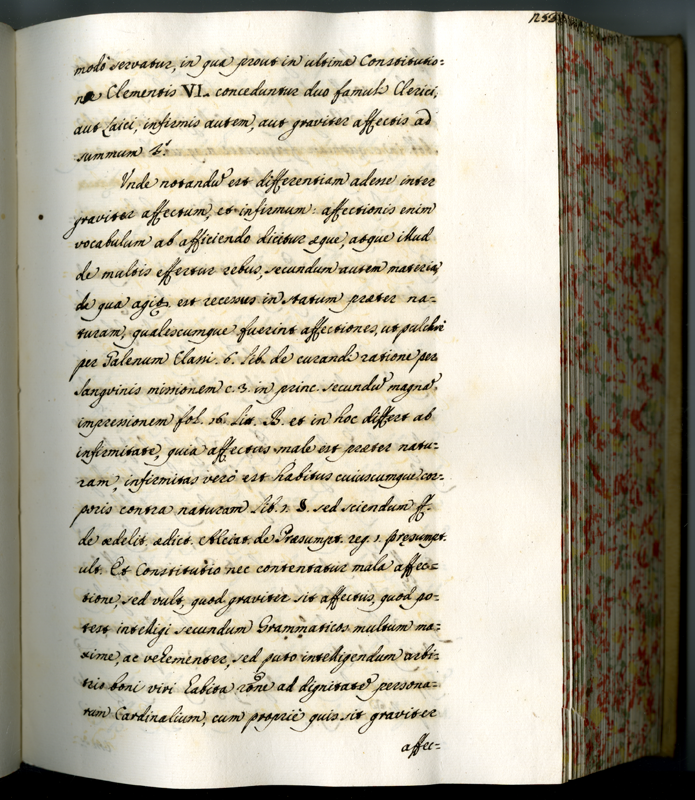 modò servatur, in qua prout in ultima Constitutio=
ne Clementis VI. conceduntur duo famuli Clerici,
aut Laici, infirmis autem, aut graviter affectis ad
summum 4.r
Vnde notandũ est differentiam adesse inter
graviter affectum, et infirmum: affectionis enim
vocabulum ab afficiendo dicitur æque, atque illud
de multis effertur rebus, secundum autem materiã,
de qua agitr est recessus in statum præter na=
turam, qualescumque fuerint affectiones, ut pulchrè
per Galenum Classi. 6. lib. de curandi ratione per
sanguinis missionem c. 3. in princ. secundũ magnã
impressionem fol. 16. lit. B. et in hoc differt ab
infirmitate, quia affectus male est præter natu=
ram, infirmitas verò est habitus cuiuscumque cor=
poris contra naturam lib. 1. §. sed sciendum ff.
de ædelit. ædict. Alciat. de Præsumpt. reg. 1. præsumpt.
ult. Et Constitutio nec contentatur mala affec=
tione, sed vult, quod graviter sit affectus, quod po=
test intelligi secundum Grammaticos multum ma=
xime, ac vehementer, sed puto intelligendum arbi=
trio boni viri habita rõne ad dignitatẽ persona=
rum Cardinalium, cum propriè quis sit graviter
affec=